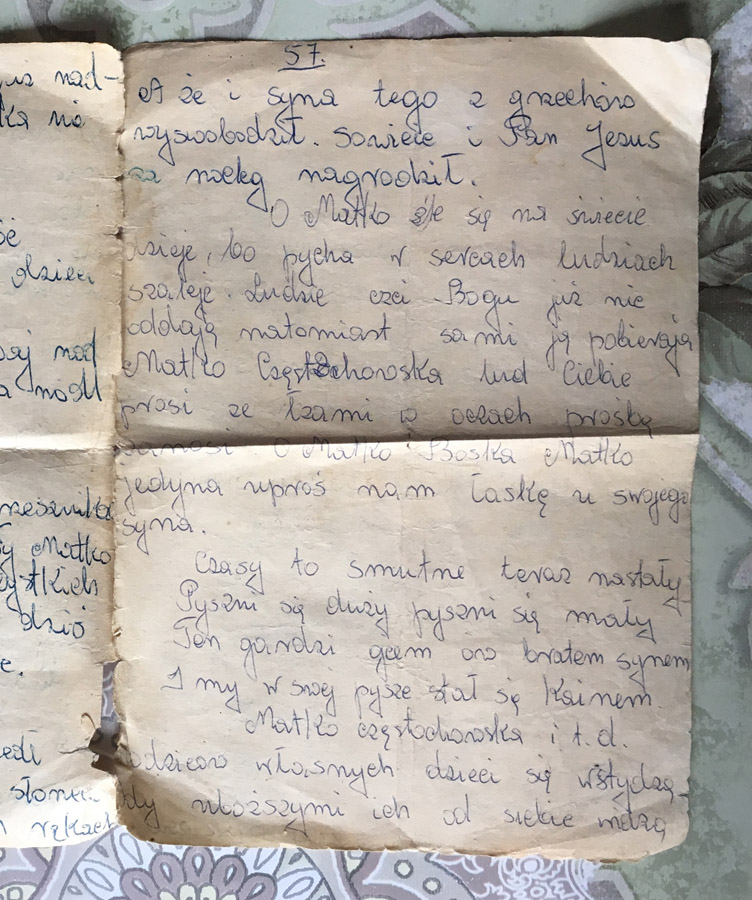 już nad-
ka na
dzieci
nad
a
rzesznika
y Matko
ystkich
dziś
e.
słońce
rękach
57.
A że i syna tego z grzechów
wyswobodził. Sowicie i Pan Jezus
za mękę nagrodził.
O Matko źle się na świecie
dzieje, bo pycha w sercach ludziach
szaleje. Ludzie czci Bogu już nie
oddają natomiast sami ją pobierają
Matko Częstochowska lud Ciebie
prosi ze łzami w oczach prośbę
zanosi. O Matko Boska Matko
jedyna uproś nam łaskę u swojego
syna.
Czasy to smutne teraz nastały
Pyszni się duży pyszni się mały
Ten gardzi ów bratem synem
I my w swej pysze stał się Kainem.
Matko częstochowska i t.d.
Rodziców własnych dzieci się wstydzą
Gdy uboższymi ich od siebie widzą